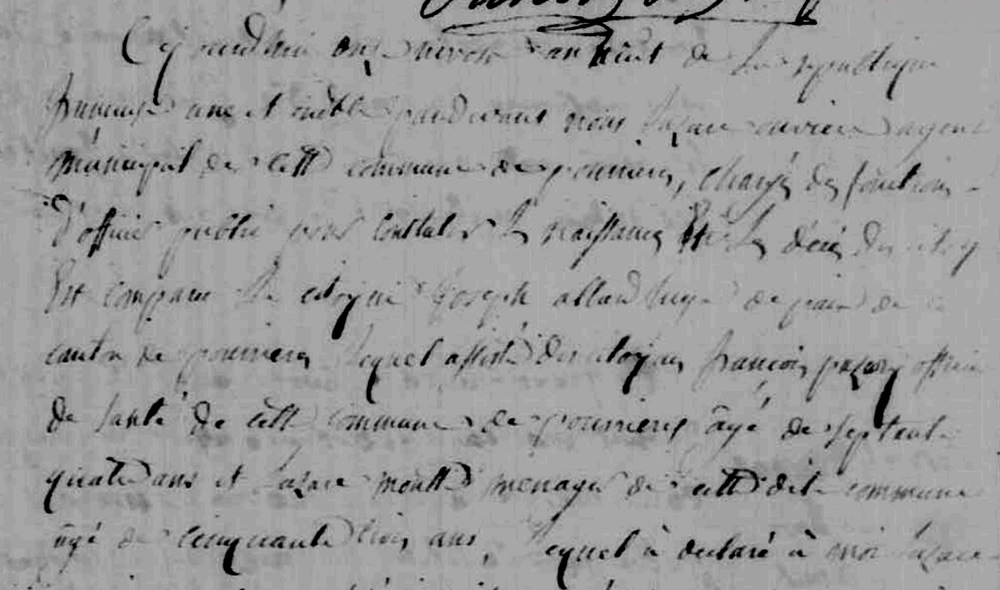 aujourdhui onze nivose an huit de la republique
francaise une et indivisible pardevant nous Lazare agent
municipal de cette commune de pourrieres, chargé des fonctions
d'officier public pour constater les naissances et les décès des citoy
Est comparu le citoyen joseph allard juge de paix de
canton de pourrieres lequel assisté des citoyens françois officier
de santé de cette commune de pourrieres âgé de septente
quatre ans et Lazare menager de cette dite commune
âgé de cinquante trois ans, lequel à declaré à moi Lazare